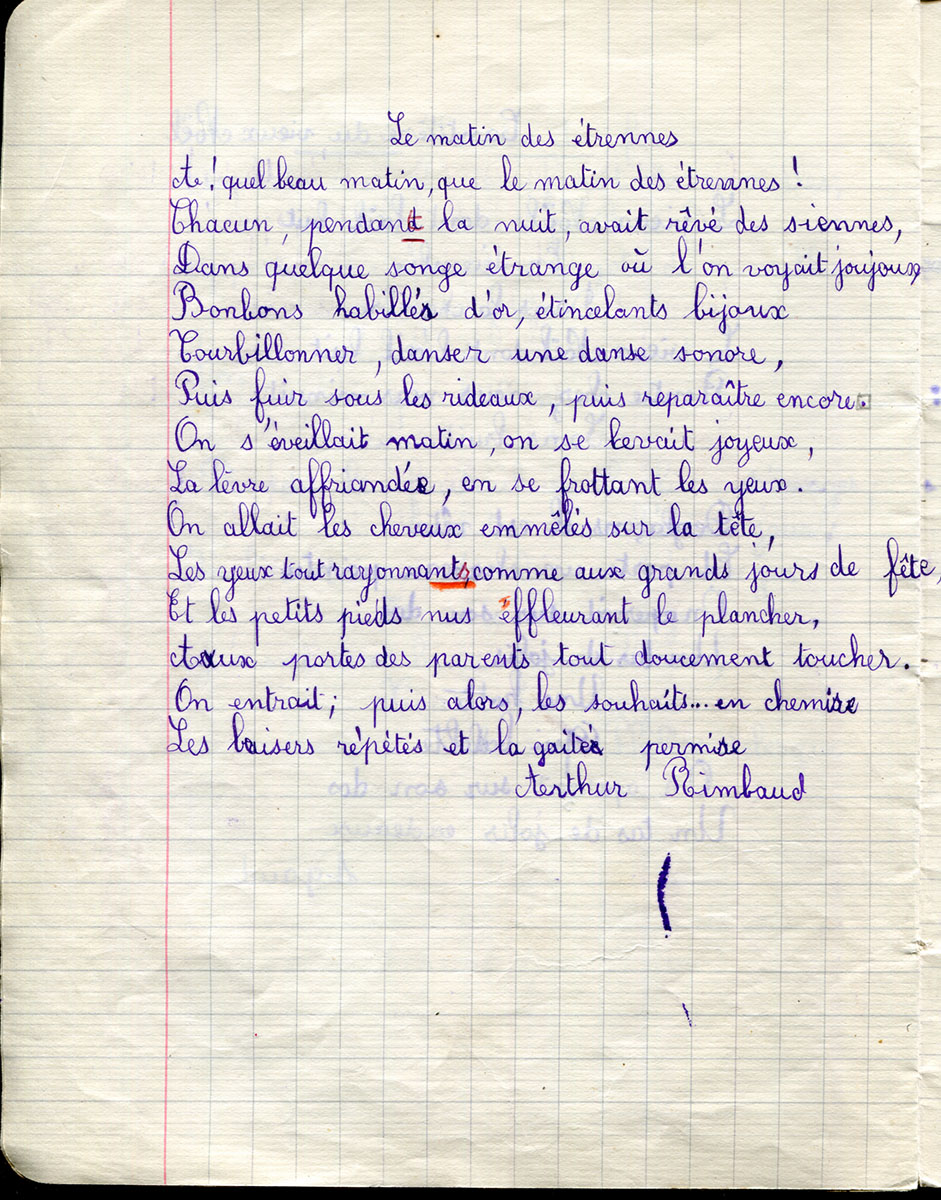 Le matin des étrennes
Ah! quel beau matin, que le matin des étrennes!
Chacun, pendant la nuit, avait rêvé des siennes,
Dans quelque songe étrange où l'on voyait joujoux,
Bonbons habillés d'or, étincelants bijoux
Tourbillonner, danser une danse sonore,
Puis fuir sous les rideaux, puis reparaître encore.
On s'éveillait matin, on se levait joyeux,
La lèvre affriandée, en se frottant les yeux.
On allait les cheveux emmêlés sur la tête,
Les yeux tout rayonnants, comme aux grands jours de fête,
Et les petits pieds nus effleurant le plancher,
Aux portes des parents tout doucement toucher.
On entrait; puis alors, les souhaits... en chemise
Les baisers répétés et la gaité permise
Arthur Rimbaud